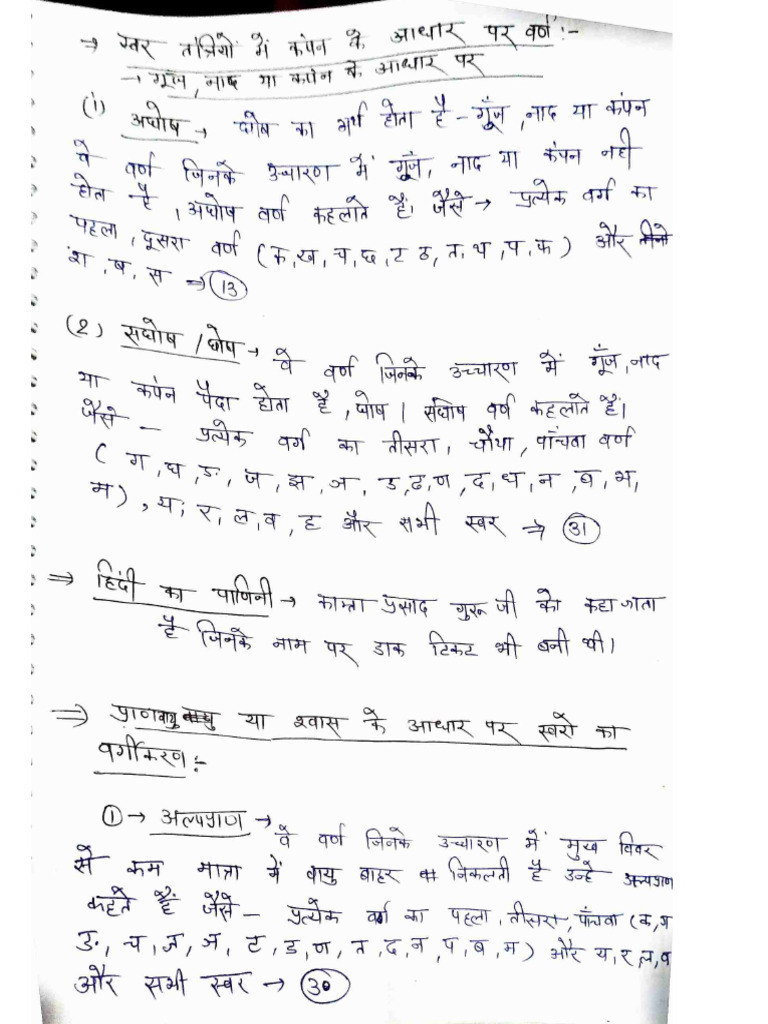 → स्वर तंत्रियों में कंपन के आधार पर वर्ण :-
→ गूँज, नाद या कंपन के आधार पर
(1) अघोष → घोष का अर्थ होता है - गूँज, नाद या कंपन
वे वर्ण जिनके उच्चारण में गूँज, नाद या कंपन नही
होता है, अघोष वर्ण कहलाते हैं। जैसे → प्रत्येक वर्ग का
पहला, दूसरा वर्ण (क,ख,च,छ,ट ठ,त,थ,प,फ) और
श, ष, स ⇒ 13
(2) सघोष / घोष → वे वर्ण जिनके उच्चारण में गूँज, नाद
या कंपन पैदा होता है, घोष / सघोष वर्ण कहलाते हैं।
जैसे - प्रत्येक वर्ग का तीसरा, चौथा, पाँचवा वर्ण
( ग, घ, ङ, ज, झ, ञ, ड,ढ,ण, द,ध,न ,ब, भ,
म), य, र, ल,व, ह और सभी स्वर ⇒ 31
⇒ हिंदी का पाणिनी → कामता प्रसाद गुरू जी को कहा जाता
है जिनके नाम पर डाक टिकट भी बनी थी।
⇒ प्राणवायु या श्वास के आधार पर स्वरो का
वर्गीकरण :-
① → अल्पप्राण → वे वर्ण जिनके उच्चारण में मुख विवर
से कम मात्रा में वायु बाहर निकलती है उन्हे अल्पप्राण
कहते हैं जैसे - प्रत्येक वर्ग का पहला, तीसरा, पाँचवा (क,ग
ङ, च, ज, ञ, ट, ड, ण, त, द, न, प, ब, म) और य,र,ल,व
और सभी स्वर → 30